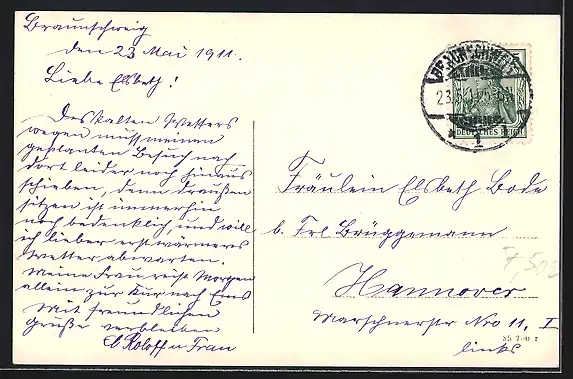 Braunschweig
den 23 Mai 1911.
Liebe Elsbeth!
Des kalten Wetters
wegen muss meinen
geplanten Besuch nach
dort leider noch hinaus
schieben, denn draußen
sitzen ist immerhin
noch bedenklich, und will
ich lieber erst wärmeres
Wetter abwarten.
Meine Frau reist Morgen
allein zur Kur nach Ems
Mit freundlichen
Grüße verbleiben
Roloff u Frau
BRAUNSCHWEIG
23.5.11
1
DEUTSCHES REICH
Fräulein Elsbeth Bode
b. Frl Brüggemann
Hannover
Marschnerstr Nro 11, I
links